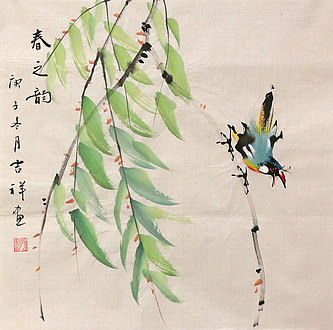 春之韵
庚子冬月吉祥画